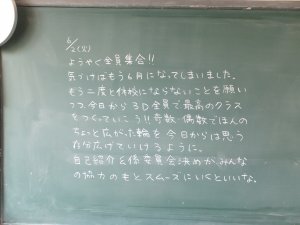 6/2(火)
ようやく全員集合!!
気づけばもう6月になってしまいました。
もう二度と休校にならないことを願い
つつ、今日から3D全員で最高のクラス
をつくっていこう!!奇数・偶数でほんの
ちょっと広がった輪を今日からは思う
存分広げていけるように。
自己紹介&係委員会決めが、みんな
の協力のもとスムーズにいくといいな。